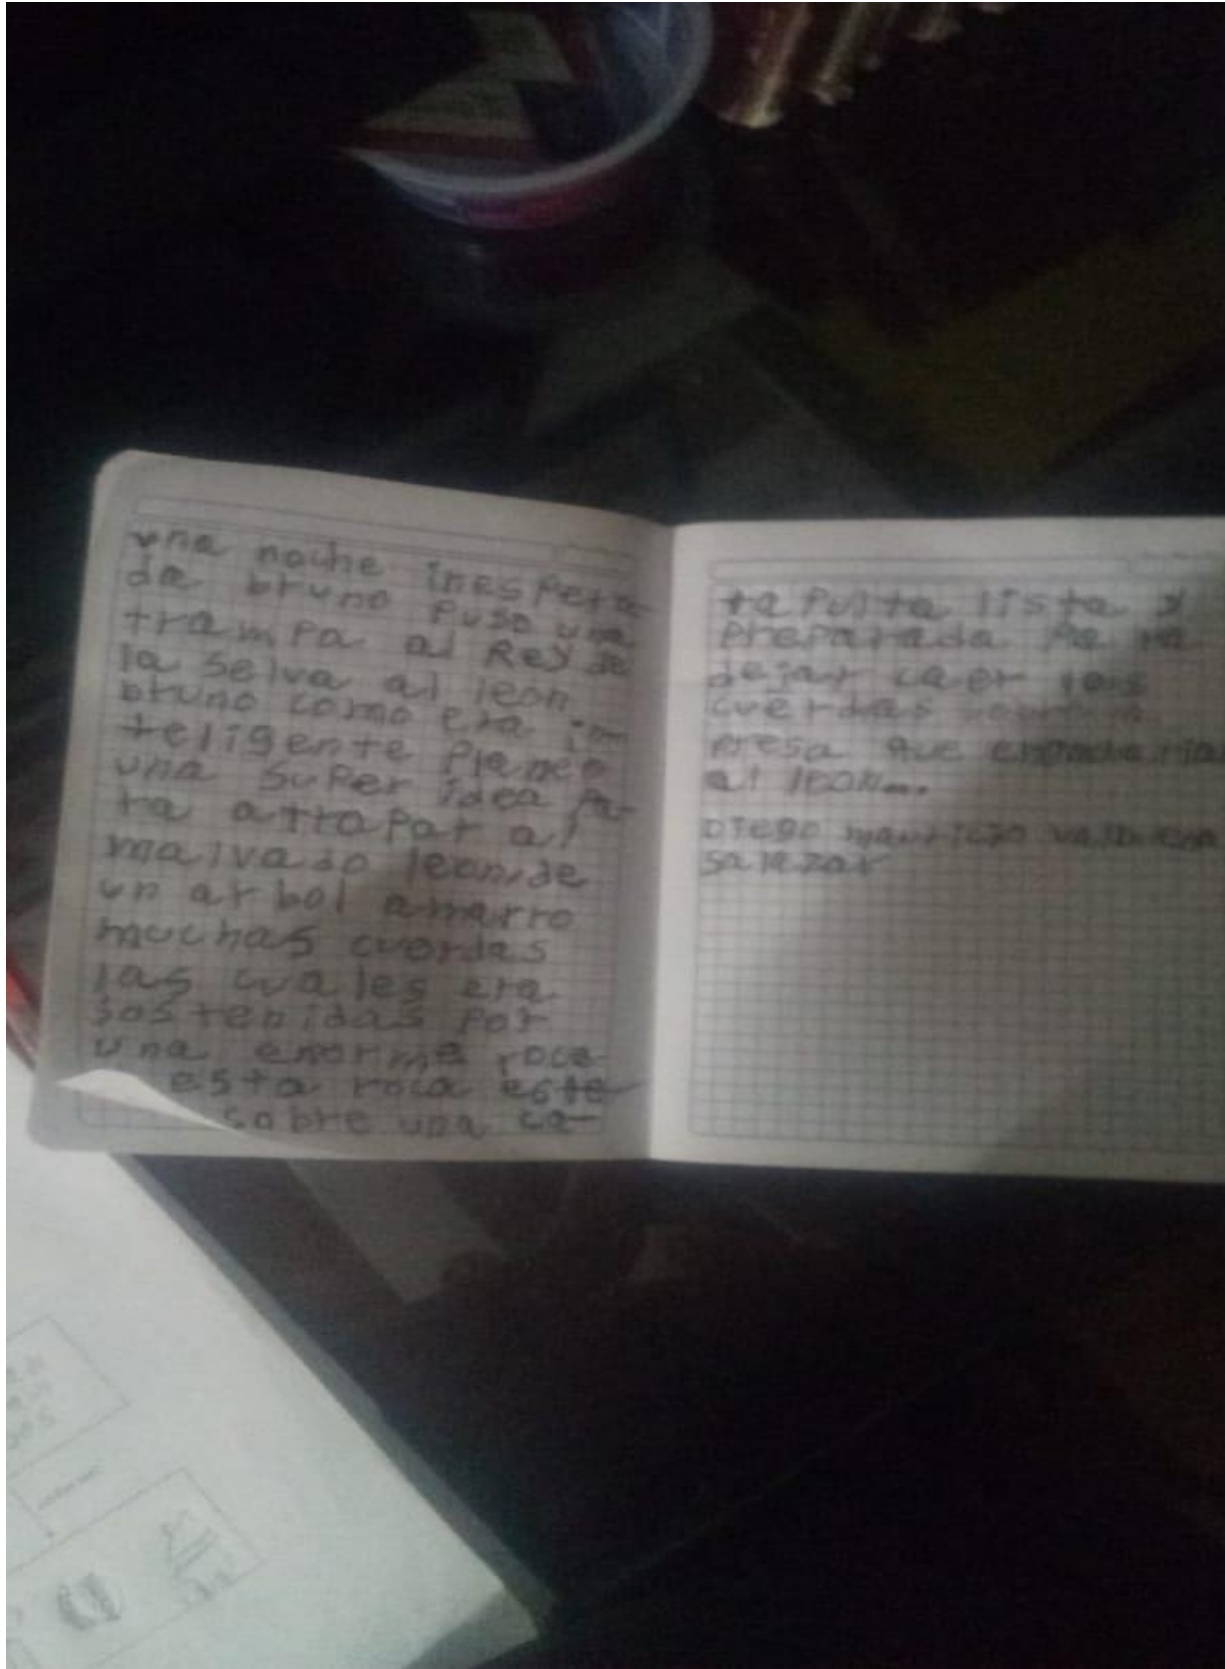 una noche inespera
da bruno puso una
trampa al Rey de
la selva al leon.
bruno como era in
teligente planeo
una super idea pa-
ra atrapar al
malvado leon, de
un arbol amarro
muchas cuerdas
las cuales era
sostenidas por
una enorme roca
esta roca este
sobre una ca-
tapulta lista y
preparada para
dejar caer las
cuerdas
presa que
al leon...
Diego mauricio
salazar